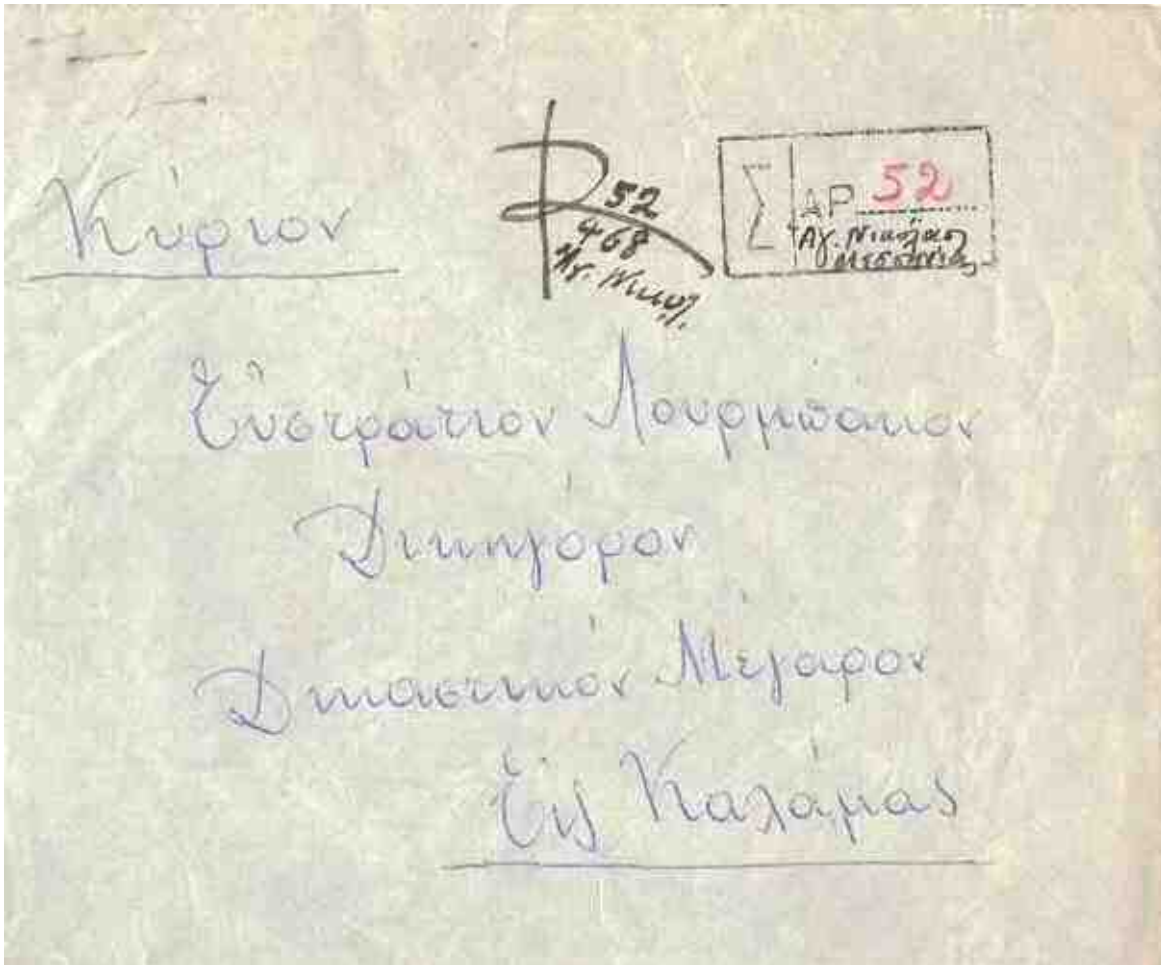 Κύριον
R 52
468
Αγ. Νικολ.
Σ ΑΡ 52
Αγ. Νικόλαος
Μεσσηνίας
Εὐστράτιον Λουρμπάκιον
Δικηγόρον
Δικαστικόν Μέγαρον
Εἰς Καλάμας